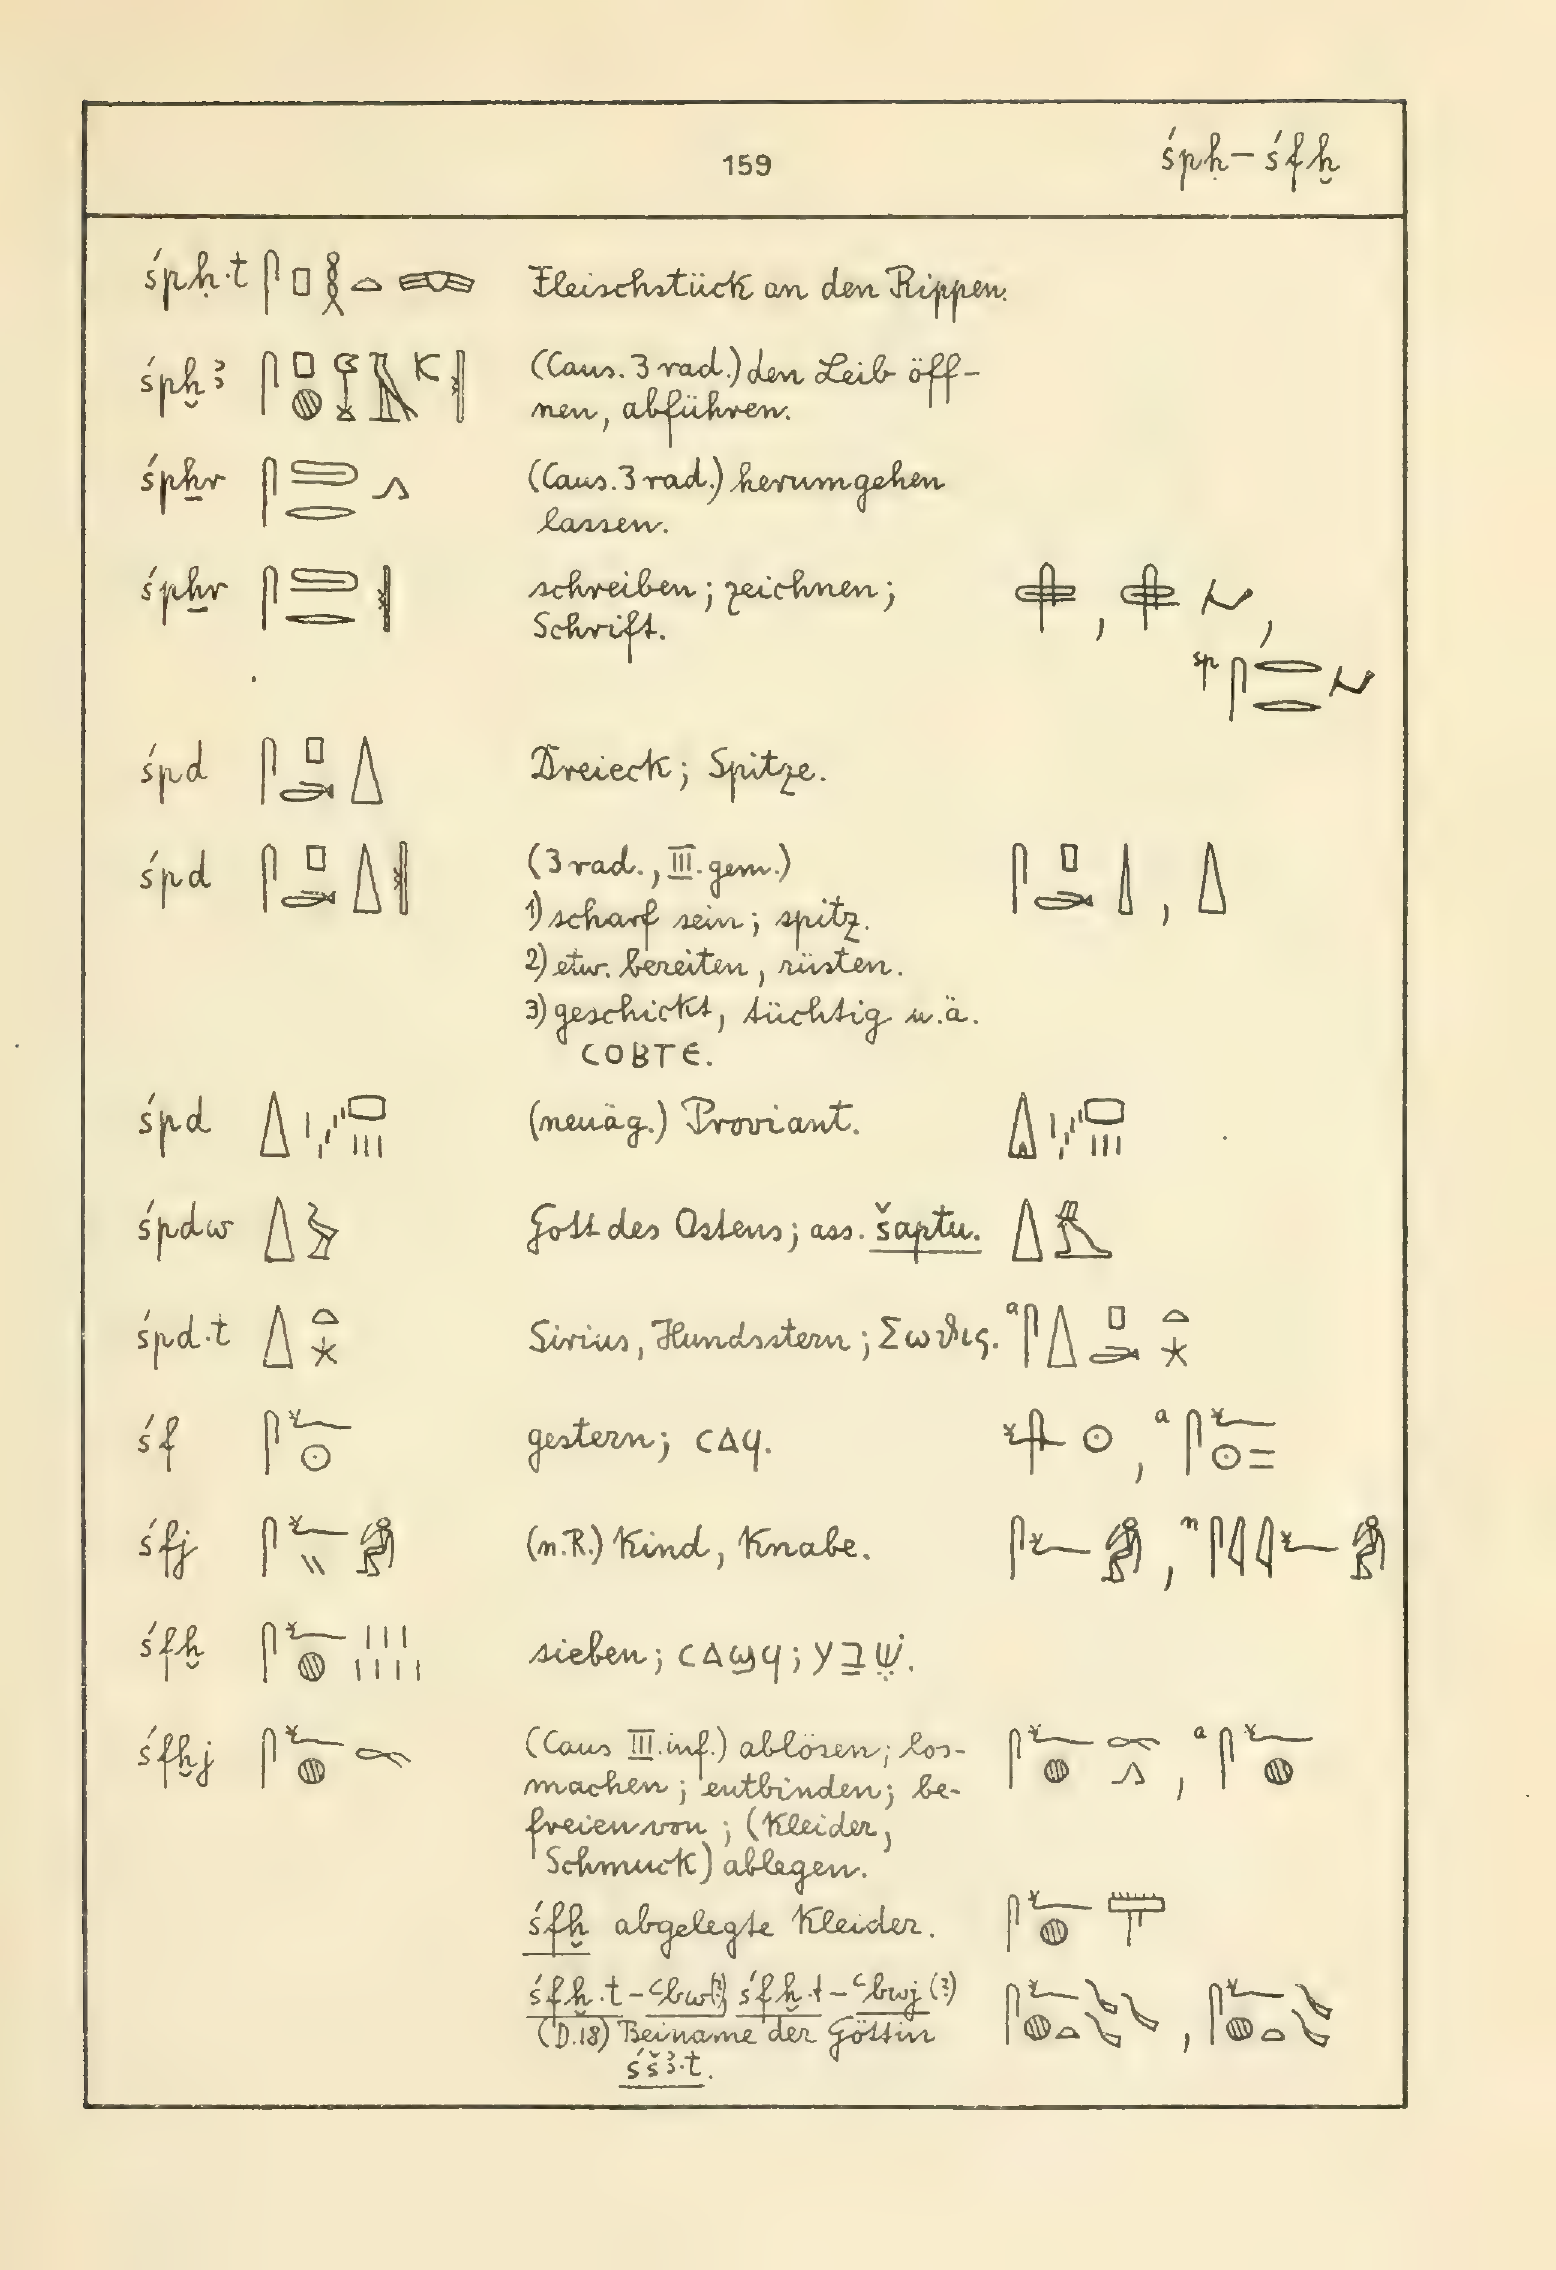 159
śpḥ – śfḫ
śpḥ·t Fleischstück an den Rippen.
śpḫꜣ (Caus. 3 rad.) den Leib öff-
nen, abführen.
śpẖr (Caus. 3 rad.) herumgehen
lassen.
śpẖr schreiben; zeichnen; , ,
Schrift.
sp
śpd Dreieck; Spitze.
śpd (3 rad., III. gem.) ,
1) scharf sein; spitz.
2) etw. bereiten, rüsten.
3) geschickt, tüchtig u.ä.
ⲤⲞⲂⲦⲈ.
śpd (neuäg.) Proviant.
śpdw Gott des Ostens; ass. šaptu.
śpd·t Sirius, Hundsstern; Σωϑις. a
śf gestern; ⲤⲀϤ. , a
śfj (n.R.) Kind, Knabe. , n
śfḫ sieben; ⲤⲀϢϤ; שֶׁבַע.
śfḫj (Caus III. inf.) ablösen; los- , a
machen; entbinden; be-
freien von; (Kleider,
Schmuck) ablegen.
śfḫ abgelegte Kleider.
śfḫ·t-ꜥbw(?) śfḫ·t-ꜥbwj (?) ,
(D.18) Beiname der Göttin
śšꜣ·t.